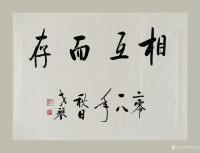 相互而存
二零
一八
年
秋日